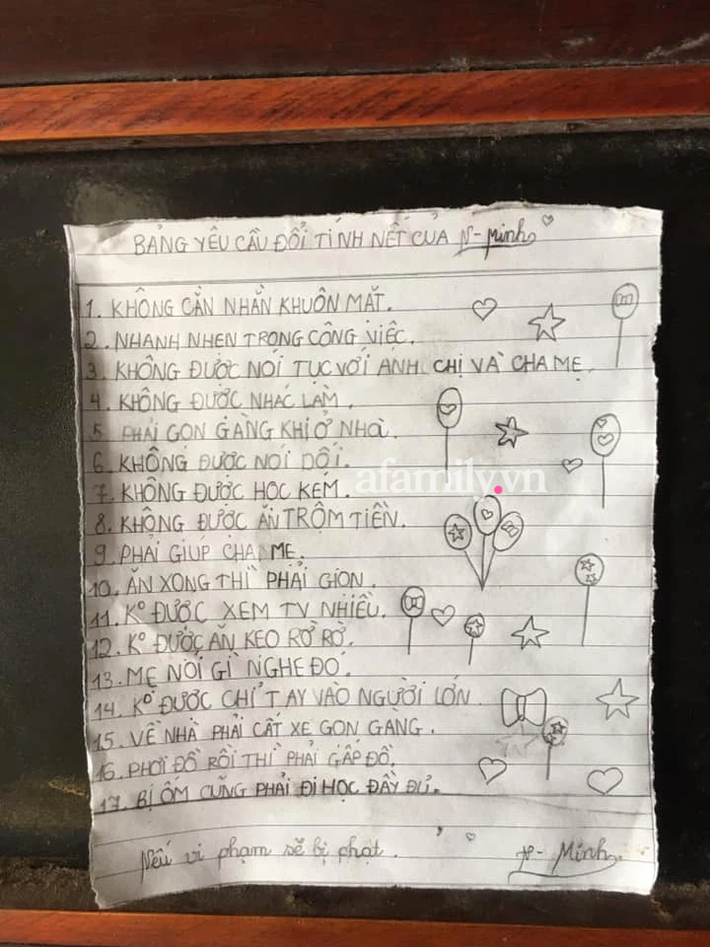 BẢNG YÊU CẦU ĐỔI TÍNH NẾT CỦA N-Minh
1. KHÔNG CẰN NHẰN KHUÔN MẶT.
2. NHANH NHEN TRONG CÔNG VIỆC.
3. KHÔNG ĐƯỢC NÓI TỤC VỚI ANH, CHỊ VÀ CHA MẸ.
4. KHÔNG ĐƯỢC NHÁC LÀM.
5. PHẢI GỌN GÀNG KHI Ở NHÀ.
6. KHÔNG ĐƯỢC NÓI DỐI.
7. KHÔNG ĐƯỢC HỌC KÉM.
afamily.vn
8. KHÔNG ĐƯỢC ĂN TRỘM TIỀN.
9. PHẢI GIÚP CHA, MẸ.
10. ĂN XONG THÌ PHẢI GION.
11. K° ĐƯỢC XEM TV NHIỀU.
12. K° ĐƯỢC ĂN KẸO RỜ RỜ.
13. MẸ NÓI GÌ NGHE ĐÓ.
14. K° ĐƯỢC CHỈ TAY VÀO NGƯỜI LỚN.
15. VỀ NHÀ PHẢI CẤT XE GỌN GÀNG.
16. PHƠI ĐỒ RỒI THÌ PHẢI GẤP ĐỒ.
17. BỊ ỐM CŨNG PHẢI ĐI HỌC ĐẦY ĐỦ.
Nếu vi phạm sẽ bị phạt.
N- Minh.